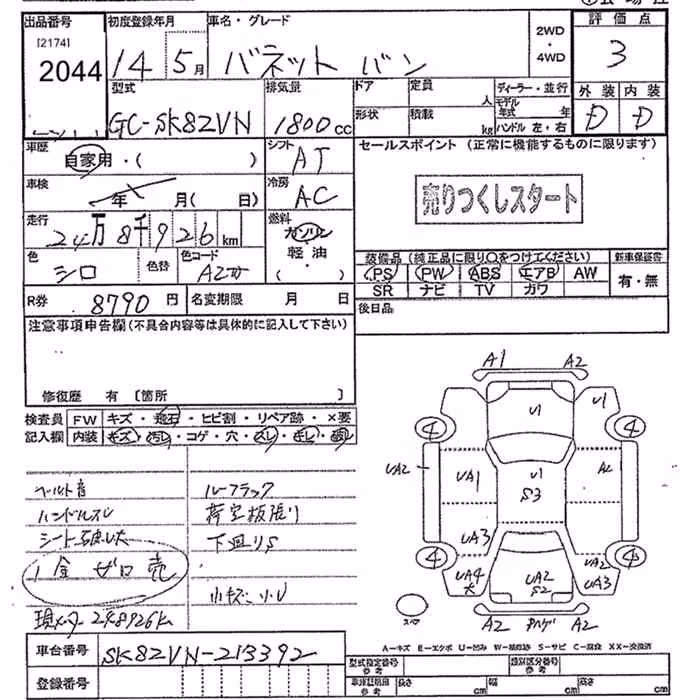 出品番号 初度登録年月 車名・グレード 評価点
[2174] 2WD
2044 14 5月 バネット バン ・ 3
4WD
型式 排気量 ドア 定員 ディーラー・並行 外装 内装
人 モデル年式 年
GC-SK82VN 1800cc 形状 積載 kg ハンドル 左・右 D D
車歴 シフト セールスポイント(正常に機能するものに限ります)
自家用・( ) AT
車検 冷房 売りつくしスタート
年 月( 日) AC
走行 燃料
24万8千926km ガソリン
色 色替 色コード 軽油 装備品(純正品に限り○をつけてください) 新車保証書
シロ ( ・ ) PS PW ABS エアB AW 有・無
SR ナビ TV カワ
R券 8790円 名変期限 月 日 後日品
注意事項申告欄(不具合内容等は具体的に記入して下さい)
修復歴 有 [箇所 ]
検査員 FW キズ・飛石・ヒビ割・リペア跡・×要
記入欄 内装 キズ・汚レ・コゲ・穴・スレ・
A1 A2
U1 U1
4 4
UA2 UA1 U1 A2
S3
UA3
4 4
UA2
UA4 UA2 UA3
大 S2
スペア A2 A2
ベルト音 ルーフラック
ハンドルスレ 荷室板張り
下廻りS
1金ゼロ売
小キズ
現メータ 248926k
A=キズ E=エクボ U=凹み W=補修跡 S=サビ C=腐食 XX=交換済
車台番号 SK82VN-213392 型式指定番号 参考 類別区分番号 参考
登録番号 車庫証明用 参考 長さ cm 幅 cm 高さ cm